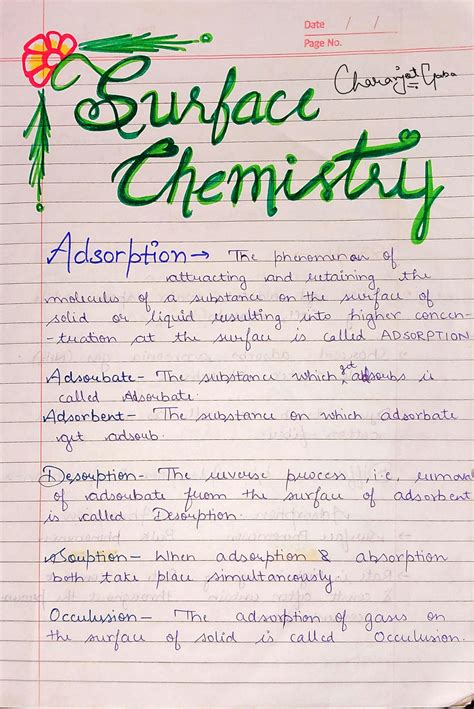 Date / /
Page No.
Charanjot Gaba
Surface
Chemistry
Adsorption → The phenomenon of
attracting and retaining the
molecules of a substance on the surface of
solid or liquid resulting into higher concen-
-tration at the surface is called ADSORPTION
Adsorbate - The substance which get adsorbs is
called Adsorbate.
Adsorbent - The substance on which adsorbate
get adsorb.
Desorption - The reverse process, i.e, removal
of adsorbate from the surface of adsorbent
is called Desorption.
Sorption - When adsorption & absorption
both take place simultaneously.
Occulusion - The adsorption of gases on
the surface of solid is called Occulusion.